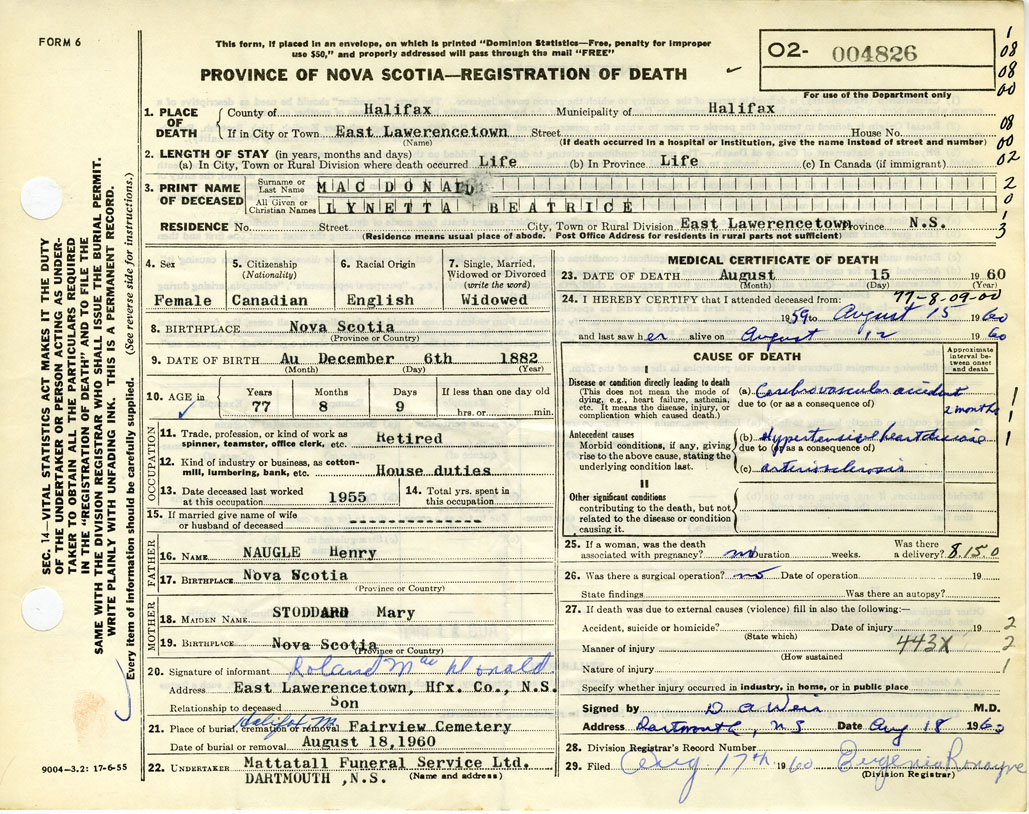 FORM 6
This form, if placed in an envelope, on which is printed "Dominion Statistics—Free, penalty for improper
use $50," and properly addressed will pass through the mail "FREE"
PROVINCE OF NOVA SCOTIA—REGISTRATION OF DEATH
O2- 004826
For use of the Department only
1
08
08
00
08
00
02
2
0
1
3
SEC. 14—VITAL STATISTICS ACT MAKES IT THE DUTY
OF THE UNDERTAKER OR PERSON ACTING AS UNDER-
TAKER TO OBTAIN ALL THE PARTICULARS REQUIRED
IN THE "REGISTRATION OF DEATH" AND TO FILE THE
SAME WITH THE DIVISION REGISTRAR WHO SHALL ISSUE THE BURIAL PERMIT.
WRITE PLAINLY WITH UNFADING INK. THIS IS A PERMANENT RECORD.
Every item of information should be carefully supplied. (See reverse side for instructions.)
1. PLACE OF DEATH
County of Halifax Municipality of Halifax
If in City or Town East Lawerencetown Street House No.
(Name) (If death occurred in a hospital or institution, give the name instead of street and number)
2. LENGTH OF STAY (in years, months and days)
(a) In City, Town or Rural Division where death occurred Life (b) In Province Life (c) In Canada (if immigrant)
3. PRINT NAME OF DECEASED
Surname or Last Name MAC DONALD
All Given or Christian Names LYNETTA BEATRICE
RESIDENCE No. Street City, Town or Rural Division East Lawerencetown Province N.S.
(Residence means usual place of abode. Post Office Address for residents in rural parts not sufficient)
4. Sex
Female
5. Citizenship
(Nationality)
Canadian
6. Racial Origin
English
7. Single, Married,
Widowed or Divorced
(write the word)
Widowed
8. BIRTHPLACE Nova Scotia
(Province or Country)
9. DATE OF BIRTH Au December 6th 1882
(Month) (Day) (Year)
10. AGE in
Years Months Days If less than one day old
77 8 9 hrs. or min.
OCCUPATION
11. Trade, profession, or kind of work as
spinner, teamster, office clerk, etc. Retired
12. Kind of industry or business, as cotton-
mill, lumbering, bank, etc. House duties
13. Date deceased last worked
at this occupation 1955
14. Total yrs. spent in
this occupation
15. If married give name of wife
or husband of deceased ---------------
FATHER
16. NAME NAUGLE Henry
17. BIRTHPLACE Nova Scotia
(Province or Country)
MOTHER
18. MAIDEN NAME STODDARD Mary
19. BIRTHPLACE Nova Scotia
(Province or Country)
20. Signature of informant Roland Mac Donald
Address East Lawerencetown, Hfx. Co., N.S.
Relationship to deceased Son
21. Place of burial, cremation or removal Halifax M. Fairview Cemetery
Date of burial or removal August 18,1960
22. UNDERTAKER Mattatall Funeral Service Ltd.
DARTMOUTH ,N.S. (Name and address)
9004-3.2: 17-6-55
MEDICAL CERTIFICATE OF DEATH
23. DATE OF DEATH August 15 1960
(Month) (Day) (Year)
24. I HEREBY CERTIFY that I attended deceased from: 77-8-09-00
1959 to August 15 1960
and last saw her alive on August 12 1960
CAUSE OF DEATH
Approximate
interval be-
tween onset
and death
I
Disease or condition directly leading to death
(This does not mean the mode of
dying, e.g., heart failure, asthenia,
etc. It means the disease, injury, or
complication which caused death.)
(a) Cerebrovascular accident
due to (or as a consequence of)
2 months
Antecedent causes
Morbid conditions, if any, giving
rise to the above cause, stating the
underlying condition last.
(b) Hypertensive heart disease
due to (or as a consequence of)
(c) arteriosclerosis
II
Other significant conditions
contributing to the death, but not
related to the disease or condition
causing it.
1
1
1
25. If a woman, was the death
associated with pregnancy? no Duration weeks. Was there
a delivery? 8.15.0
26. Was there a surgical operation? no Date of operation 19
State findings Was there an autopsy?
27. If death was due to external causes (violence) fill in also the following:—
Accident, suicide or homicide? Date of injury 19 2
(State which)
Manner of injury 443X 2
(How sustained
Nature of injury 1
Specify whether injury occurred in industry, in home, or in public place
Signed by D A Weir M.D.
Address Dartmouth, N S Date Aug 18 1960
28. Division Registrar's Record Number
29. Filed Aug 17th 1960 Eugenia Ronayne
(Division Registrar)